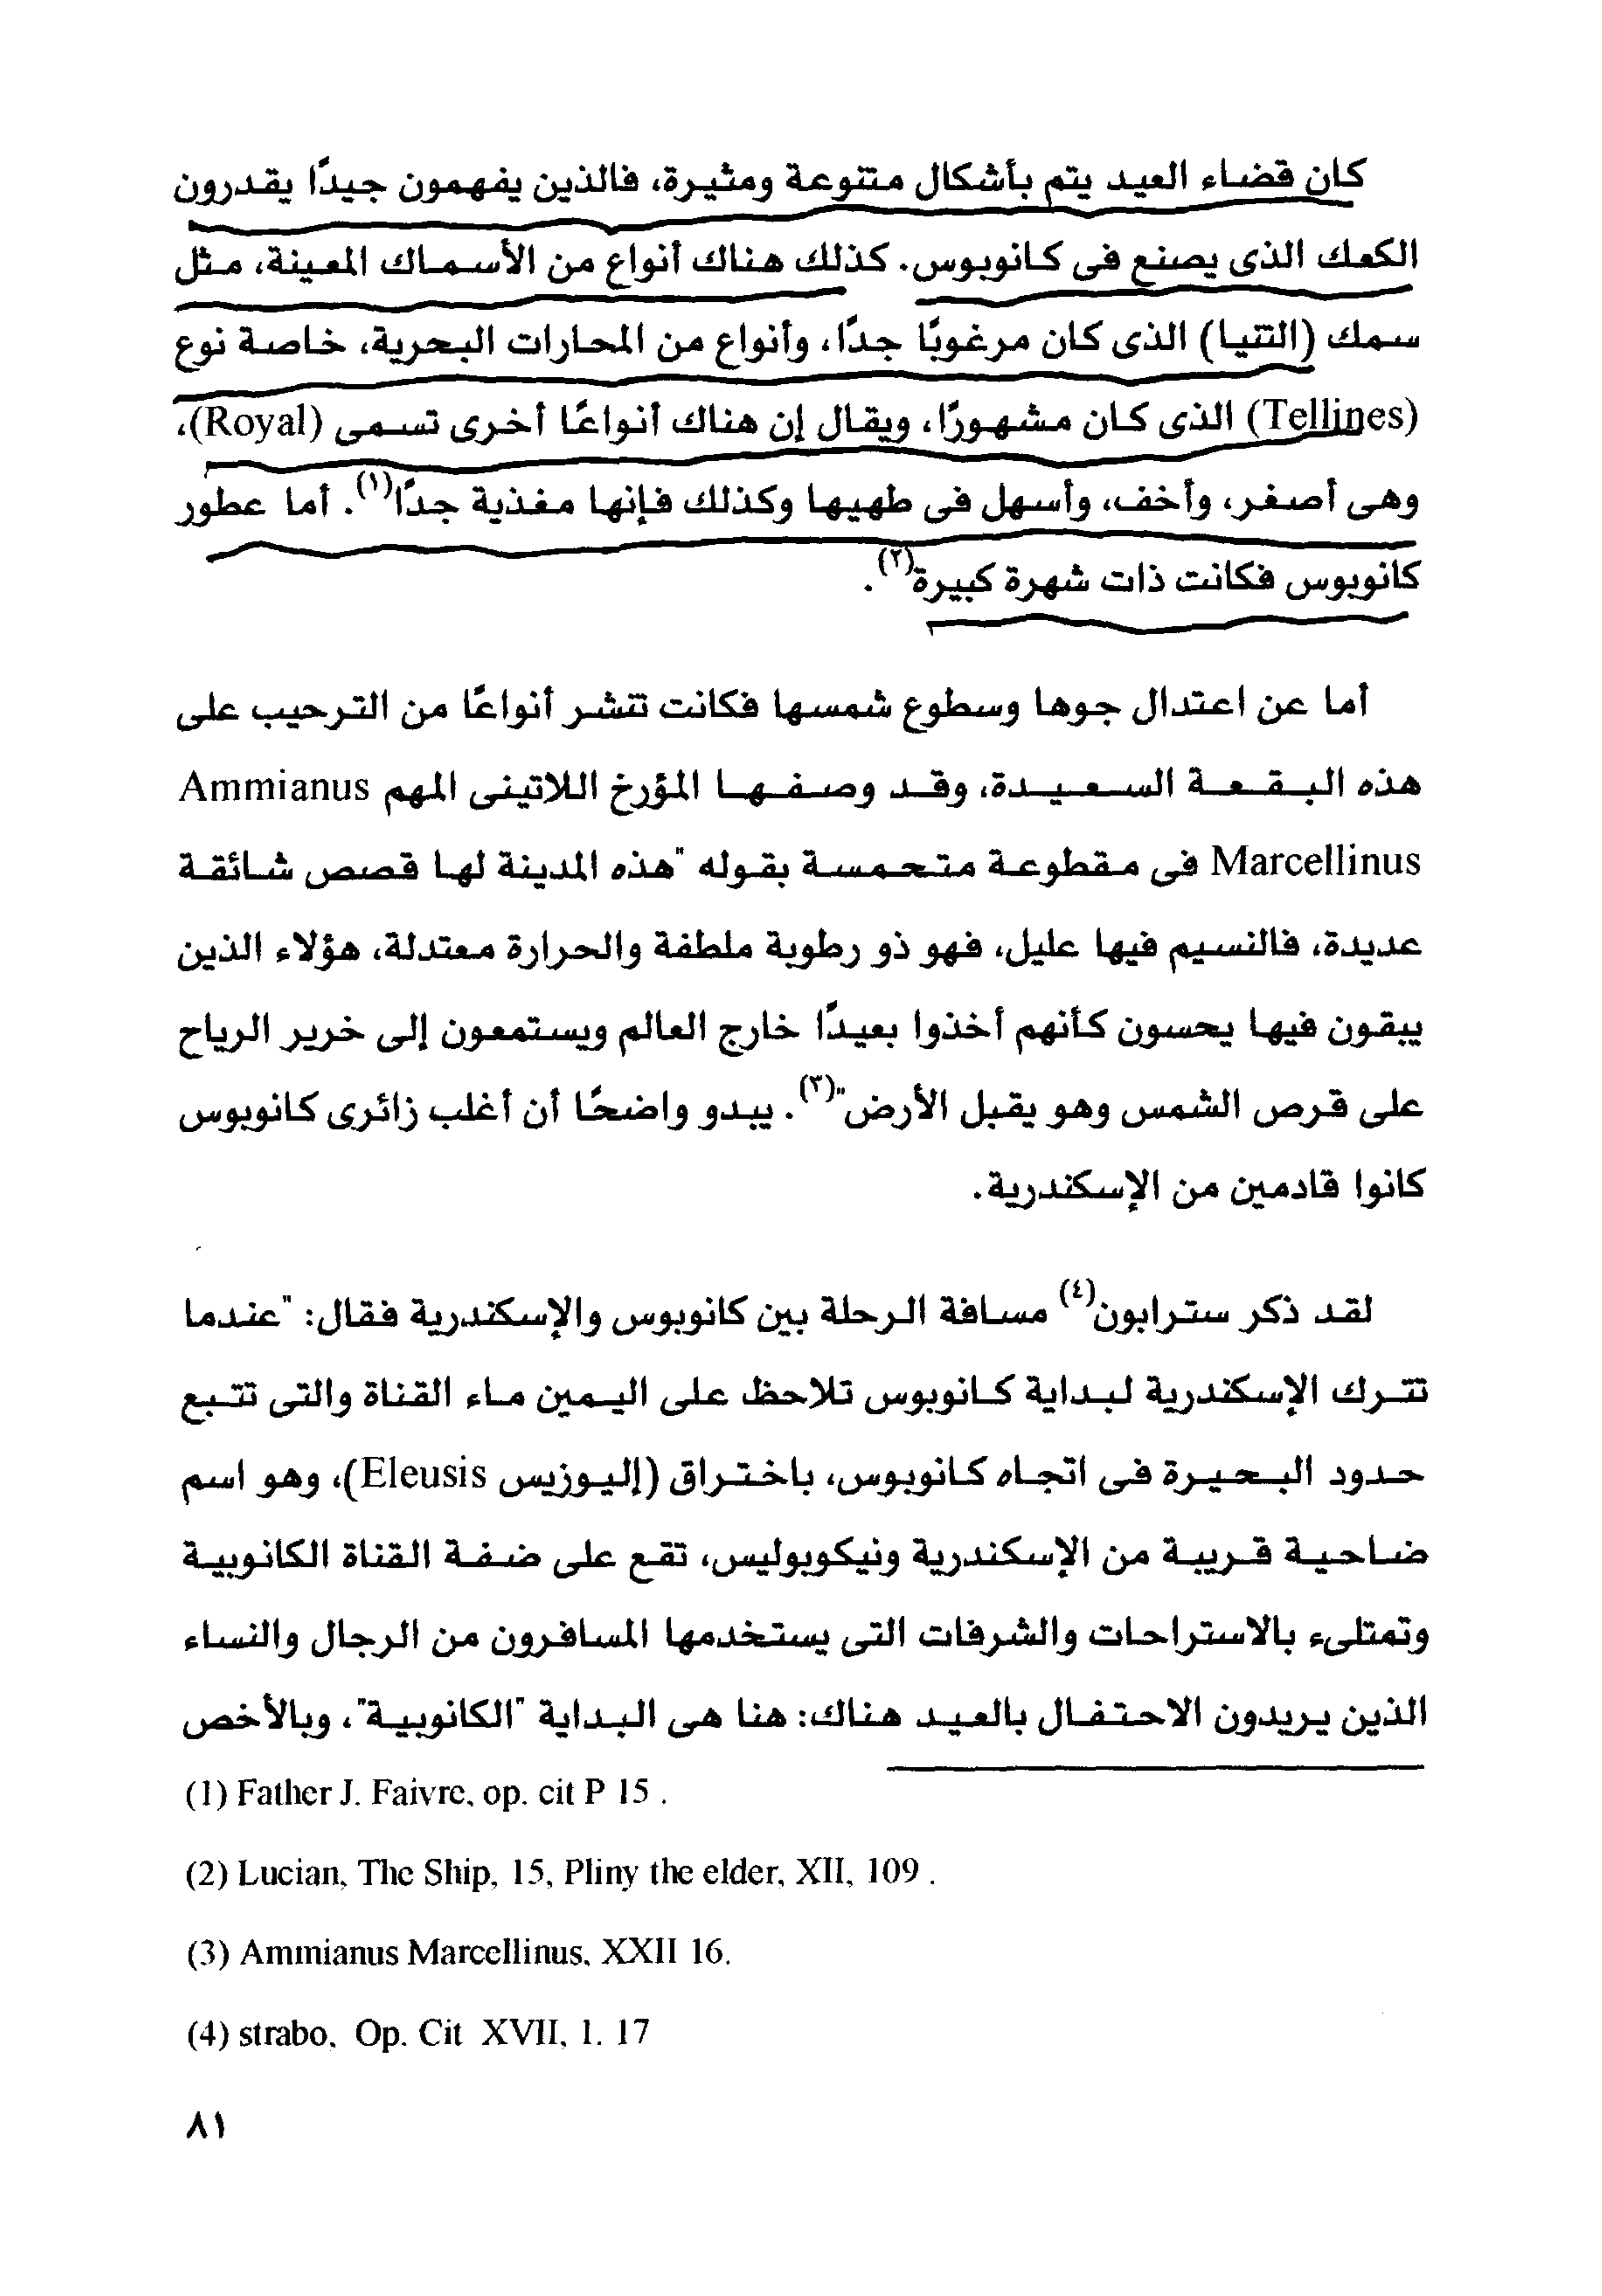 كان قضاء العيد يتم بأشكال متنوعة ومثيرة، فالذين يفهمون جيدًا يقدرون
الكعك الذى يصنع فى كانوبوس. كذلك هناك أنواع من الأسماك المعينة، مثل
سمك (التتيا) الذى كان مرغوبًا جدًا، وأنواع من المحارات البحرية، خاصة نوع
(Tellines) الذى كان مشهورًا، ويقال إن هناك أنواعًا أخرى تسمى (Royal)،
وهى أصغر، وأخف، وأسهل فى طهيها وكذلك فإنها مغذية جدًا(١). أما عطور
كانوبوس فكانت ذات شهرة كبيرة(٢).
أما عن اعتدال جوها وسطوع شمسها فكانت تنشر أنواعًا من الترحيب على
هذه البقعة السعيدة، وقد وصفها المؤرخ اللاتينى المهم Ammianus
Marcellinus فى مقطوعة متحمسة بقوله "هذه المدينة لها قصص شائقة
عديدة، فالنسيم فيها عليل، فهو ذو رطوبة ملطفة والحرارة معتدلة، هؤلاء الذين
يبقون فيها يحسون كأنهم أخذوا بعيدًا خارج العالم ويستمعون إلى خرير الرياح
على قرص الشمس وهو يقبل الأرض"(٣). يبدو واضحًا أن أغلب زائرى كانوبوس
كانوا قادمين من الإسكندرية.
لقد ذكر سترابون(٤) مسافة الرحلة بين كانوبوس والإسكندرية فقال: "عندما
تترك الإسكندرية لبداية كانوبوس تلاحظ على اليمين ماء القناة والتى تتبع
حدود البحيرة فى اتجاه كانوبوس، باختراق (إليوزيس Eleusis)، وهو اسم
ضاحية قريبة من الإسكندرية ونيكوبوليس، تقع على ضفة القناة الكانوبية
وتمتلىء بالاستراحات والشرفات التى يستخدمها المسافرون من الرجال والنساء
الذين يريدون الاحتفال بالعيد هناك: هنا هى البداية "الكانوبية"، وبالأخص
(1) Father J. Faivre, op. cit P 15 .
(2) Lucian, The Ship, 15, Pliny the elder, XII, 109 .
(3) Ammianus Marcellinus, XXII 16.
(4) strabo, Op. Cit XVII, 1. 17
٨١